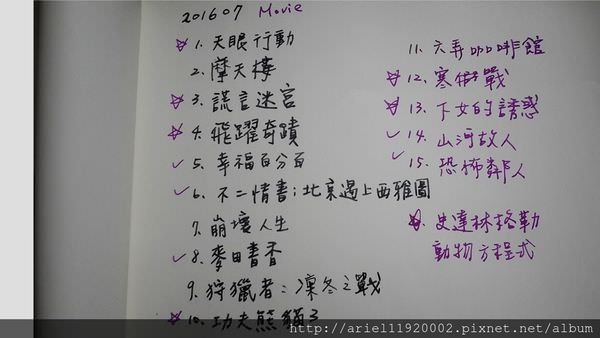 201607 Movie
☆ 1. 天眼行動
2. 摩天樓
☆ 3. 謊言迷宮
☆ 4. 飛躍奇蹟
✓ 5. 幸福百分百
✓ 6. 不二情書:北京遇上西雅圖
7. 崩壞人生
✓ 8. 麥田書香
9. 狩獵者:凜冬之戰
☆ 10. 功夫熊貓3
11. 六弄咖啡館
☆ 12. 寒戰
☆ 13. 下女的誘惑
✓ 14. 山河故人
✓ 15. 恐怖鄰人
☆ 史達林格勒
動物方程式
http://ariel11920002.pixnet.net/album